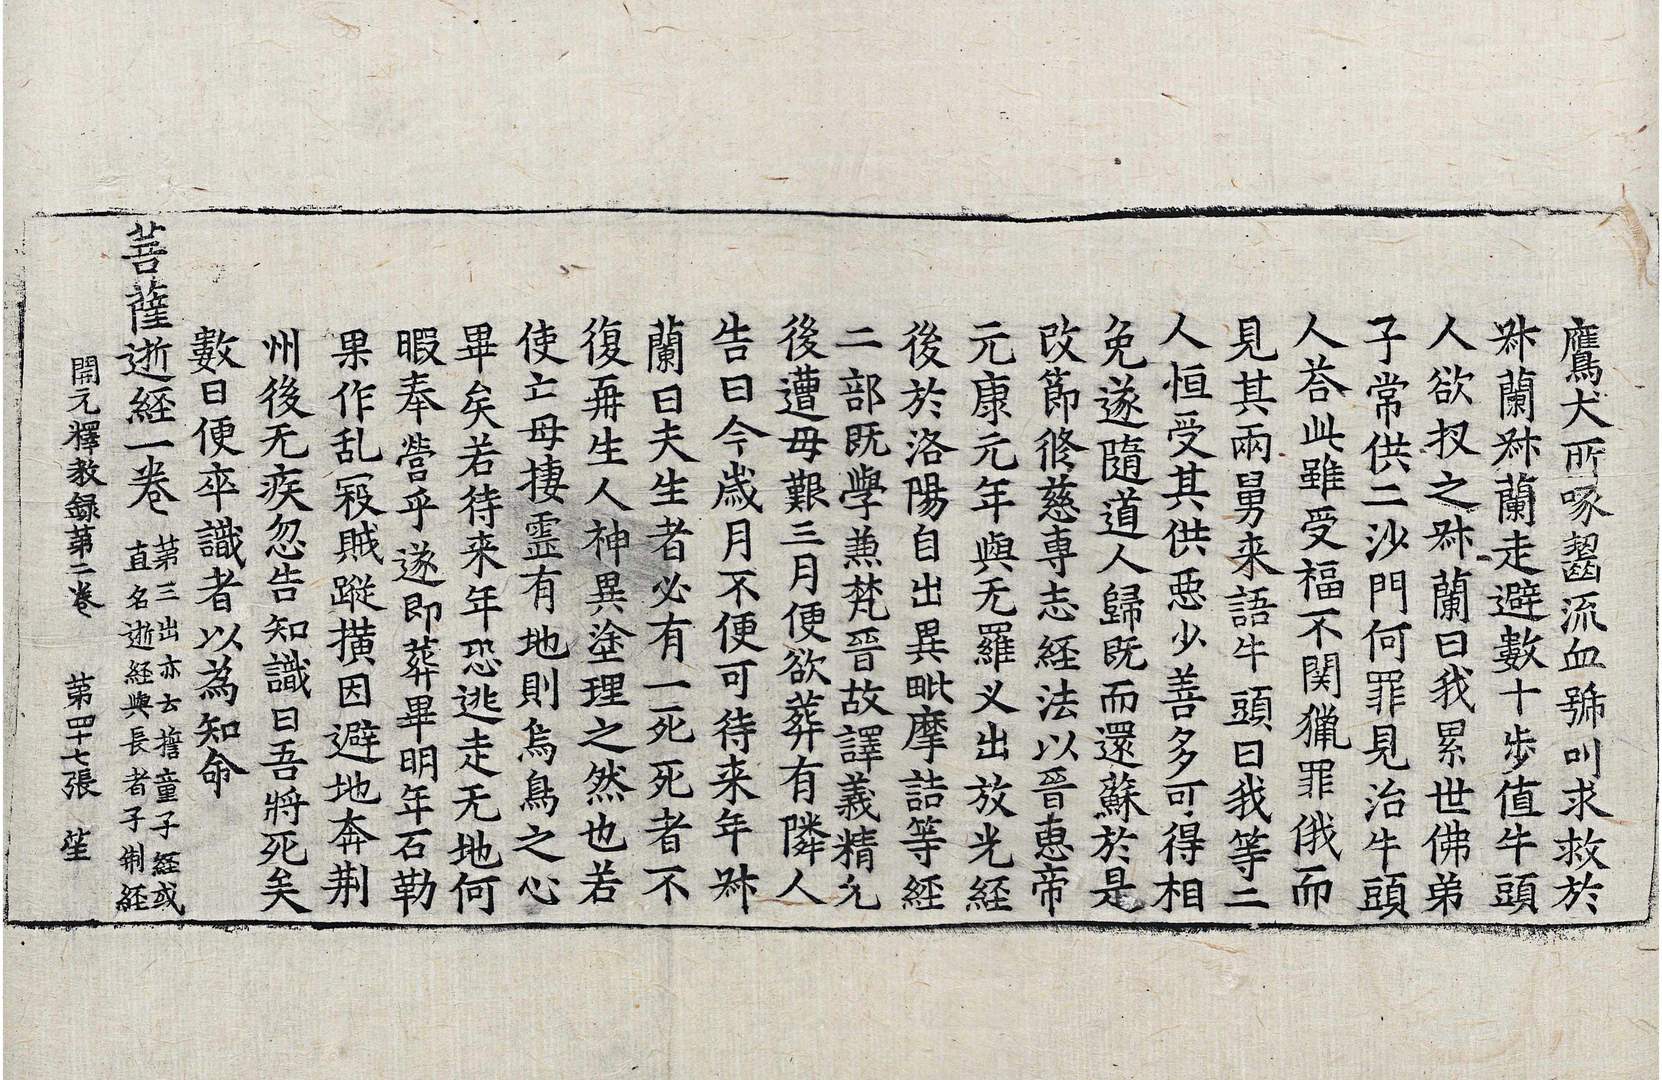 鷹犬所啄齧流血號叫求救於
𣂪蘭𣂪蘭走避數十步值牛頭
人欲杈之𣂪蘭曰我累世佛弟
子常供二沙門何罪見治牛頭
人荅此雖受福不関獵罪俄而
見其兩舅来語牛頭曰我等二
人恒受其供悪少善多可得相
免遂隨道人歸既而還蘇於是
改節修慈専志經法以晉惠帝
元康元年與无羅义出放光經
後於洛陽自出異毗摩詰等經
二部既學兼梵晉故譯義精允
後遭母艱三月便欲葬有隣人
告曰今歲月不便可待来年𣂪
蘭曰夫生者必有一死死者不
復再生人神異塗理之然也若
使亡母棲靈有地則烏鳥之心
畢矣若待来年恐逃走无地何
暇奉營乎遂即葬畢明年石勒
果作乱寇賊蹤撗因避地奔荆
州後无疾忽告知識曰吾將死矣
數日便卒識者以為知命
菩薩逝經一卷 苐三出亦云㩜童子經或
直名逝經與長者子制經
開元釋教録苐二卷 苐四十七張 𦬇